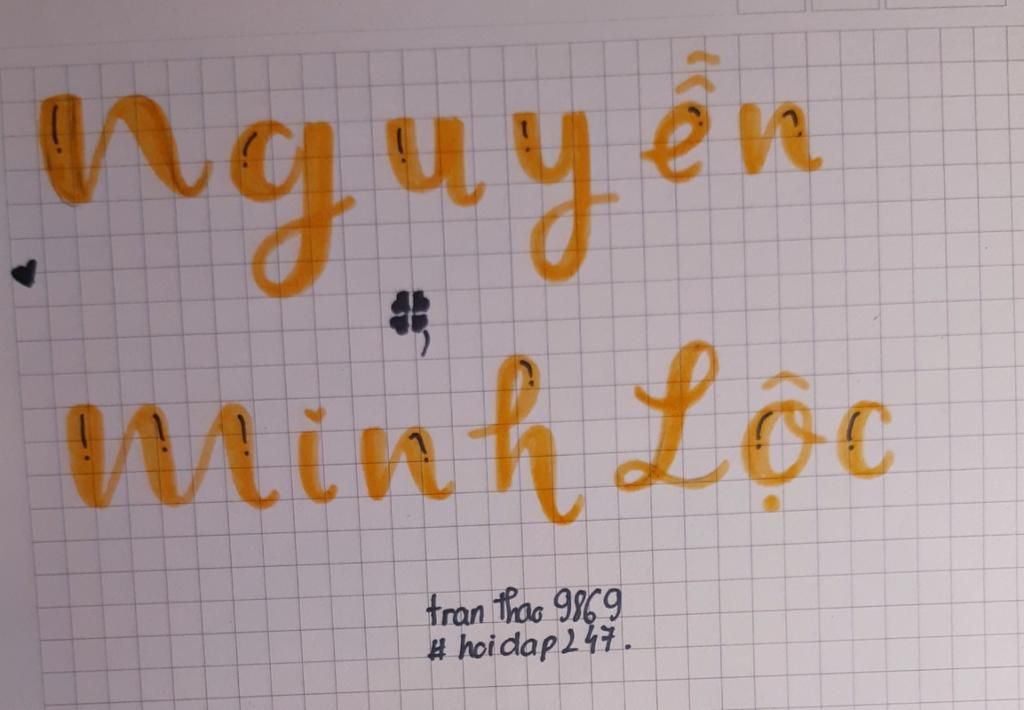 Nguyễn
Minh Lộc
tran thao 9869
# hoidap247.